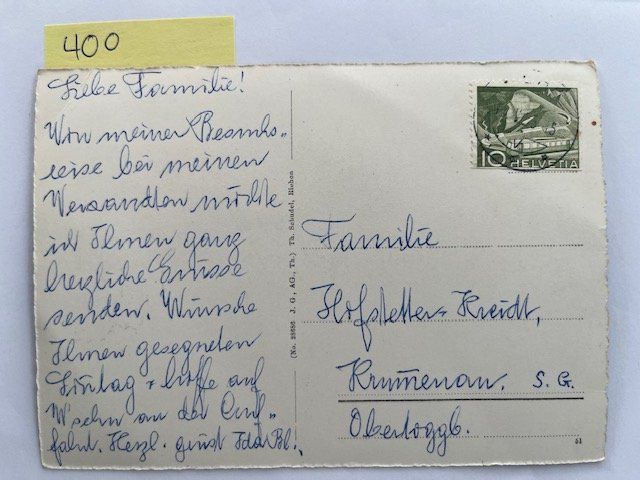 400
Liebe Familie!
Von meiner Besuchs-
reise bei meinen
Verwandten möchte
ich Ihnen ganz
herzliche Grüsse
senden. Wünsche
Ihnen gesegneten
Sonntag + hoffe auf
W'sehn an der Auf-
fahrt. Herzl. grüsst Ida Bl.
(No. 28686 J. G., AG., Th.) Th. Schudel, Riehen
10 HELVETIA
Familie
Hofstetter-Kreidt,
Krummenau. S. G.
Obertoggb.
51